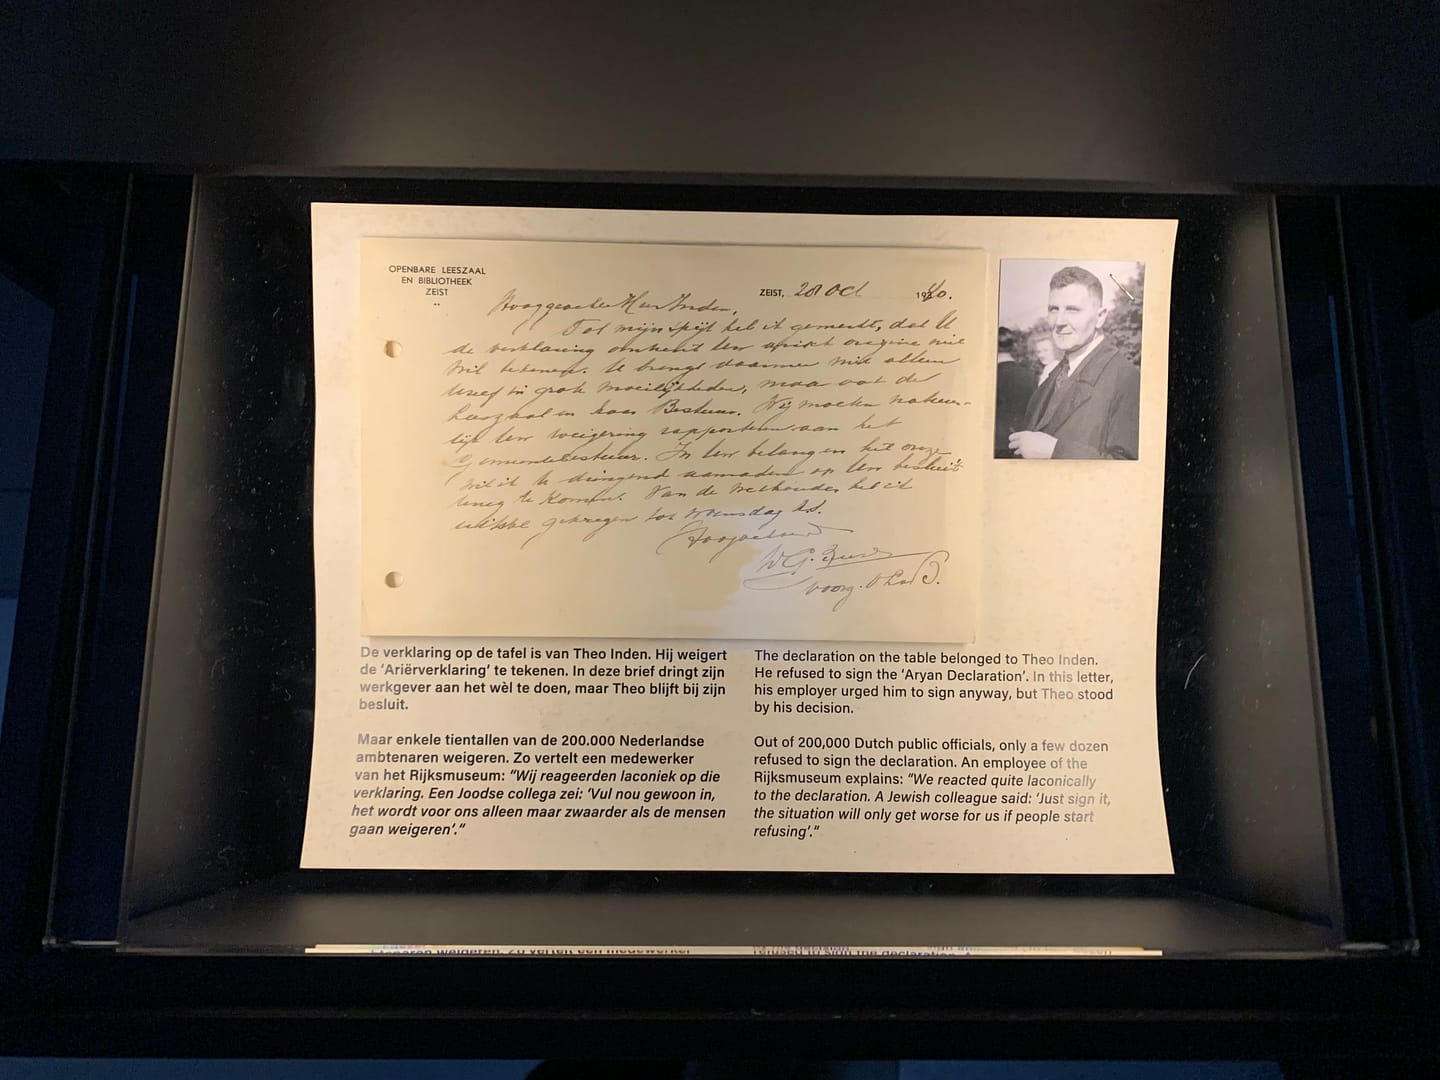 OPENBARE LEESZAAL
EN BIBLIOTHEEK
ZEIST
ZEIST, 28 Oct 1940.
Hooggeachte Heer Inden,
Tot mijn spijt heb ik gemerkt, dat U
de verklaring omtrent Uw arisch origine niet
wil tekenen. U brengt daarmee niet alleen
Uzelf in grote moeilijkheden, maar ook de
Leeszaal en haar Bestuur. Wij moeten natuur-
lijk Uw weigering rapporteeren aan het
Gemeentebestuur. In Uw belang en het onze
wil ik U dringend aanraden op Uw besluit
terug te komen. Van de Wethouder heb ik
uitstel gekregen tot Woensdag a.s.
Hoogachtend
W G.
voorg.
De verklaring op de tafel is van Theo Inden. Hij weigert
de ‘Ariërverklaring’ te tekenen. In deze brief dringt zijn
werkgever aan het wèl te doen, maar Theo blijft bij zijn
besluit.
Maar enkele tientallen van de 200.000 Nederlandse
ambtenaren weigeren. Zo vertelt een medewerker
van het Rijksmuseum: “Wij reageerden laconiek op die
verklaring. Een Joodse collega zei: ‘Vul nou gewoon in,
het wordt voor ons alleen maar zwaarder als de mensen
gaan weigeren’.”
The declaration on the table belonged to Theo Inden.
He refused to sign the ‘Aryan Declaration’. In this letter,
his employer urged him to sign anyway, but Theo stood
by his decision.
Out of 200,000 Dutch public officials, only a few dozen
refused to sign the declaration. An employee of the
Rijksmuseum explains: “We reacted quite laconically
to the declaration. A Jewish colleague said: ‘Just sign it,
the situation will only get worse for us if people start
refusing’.“